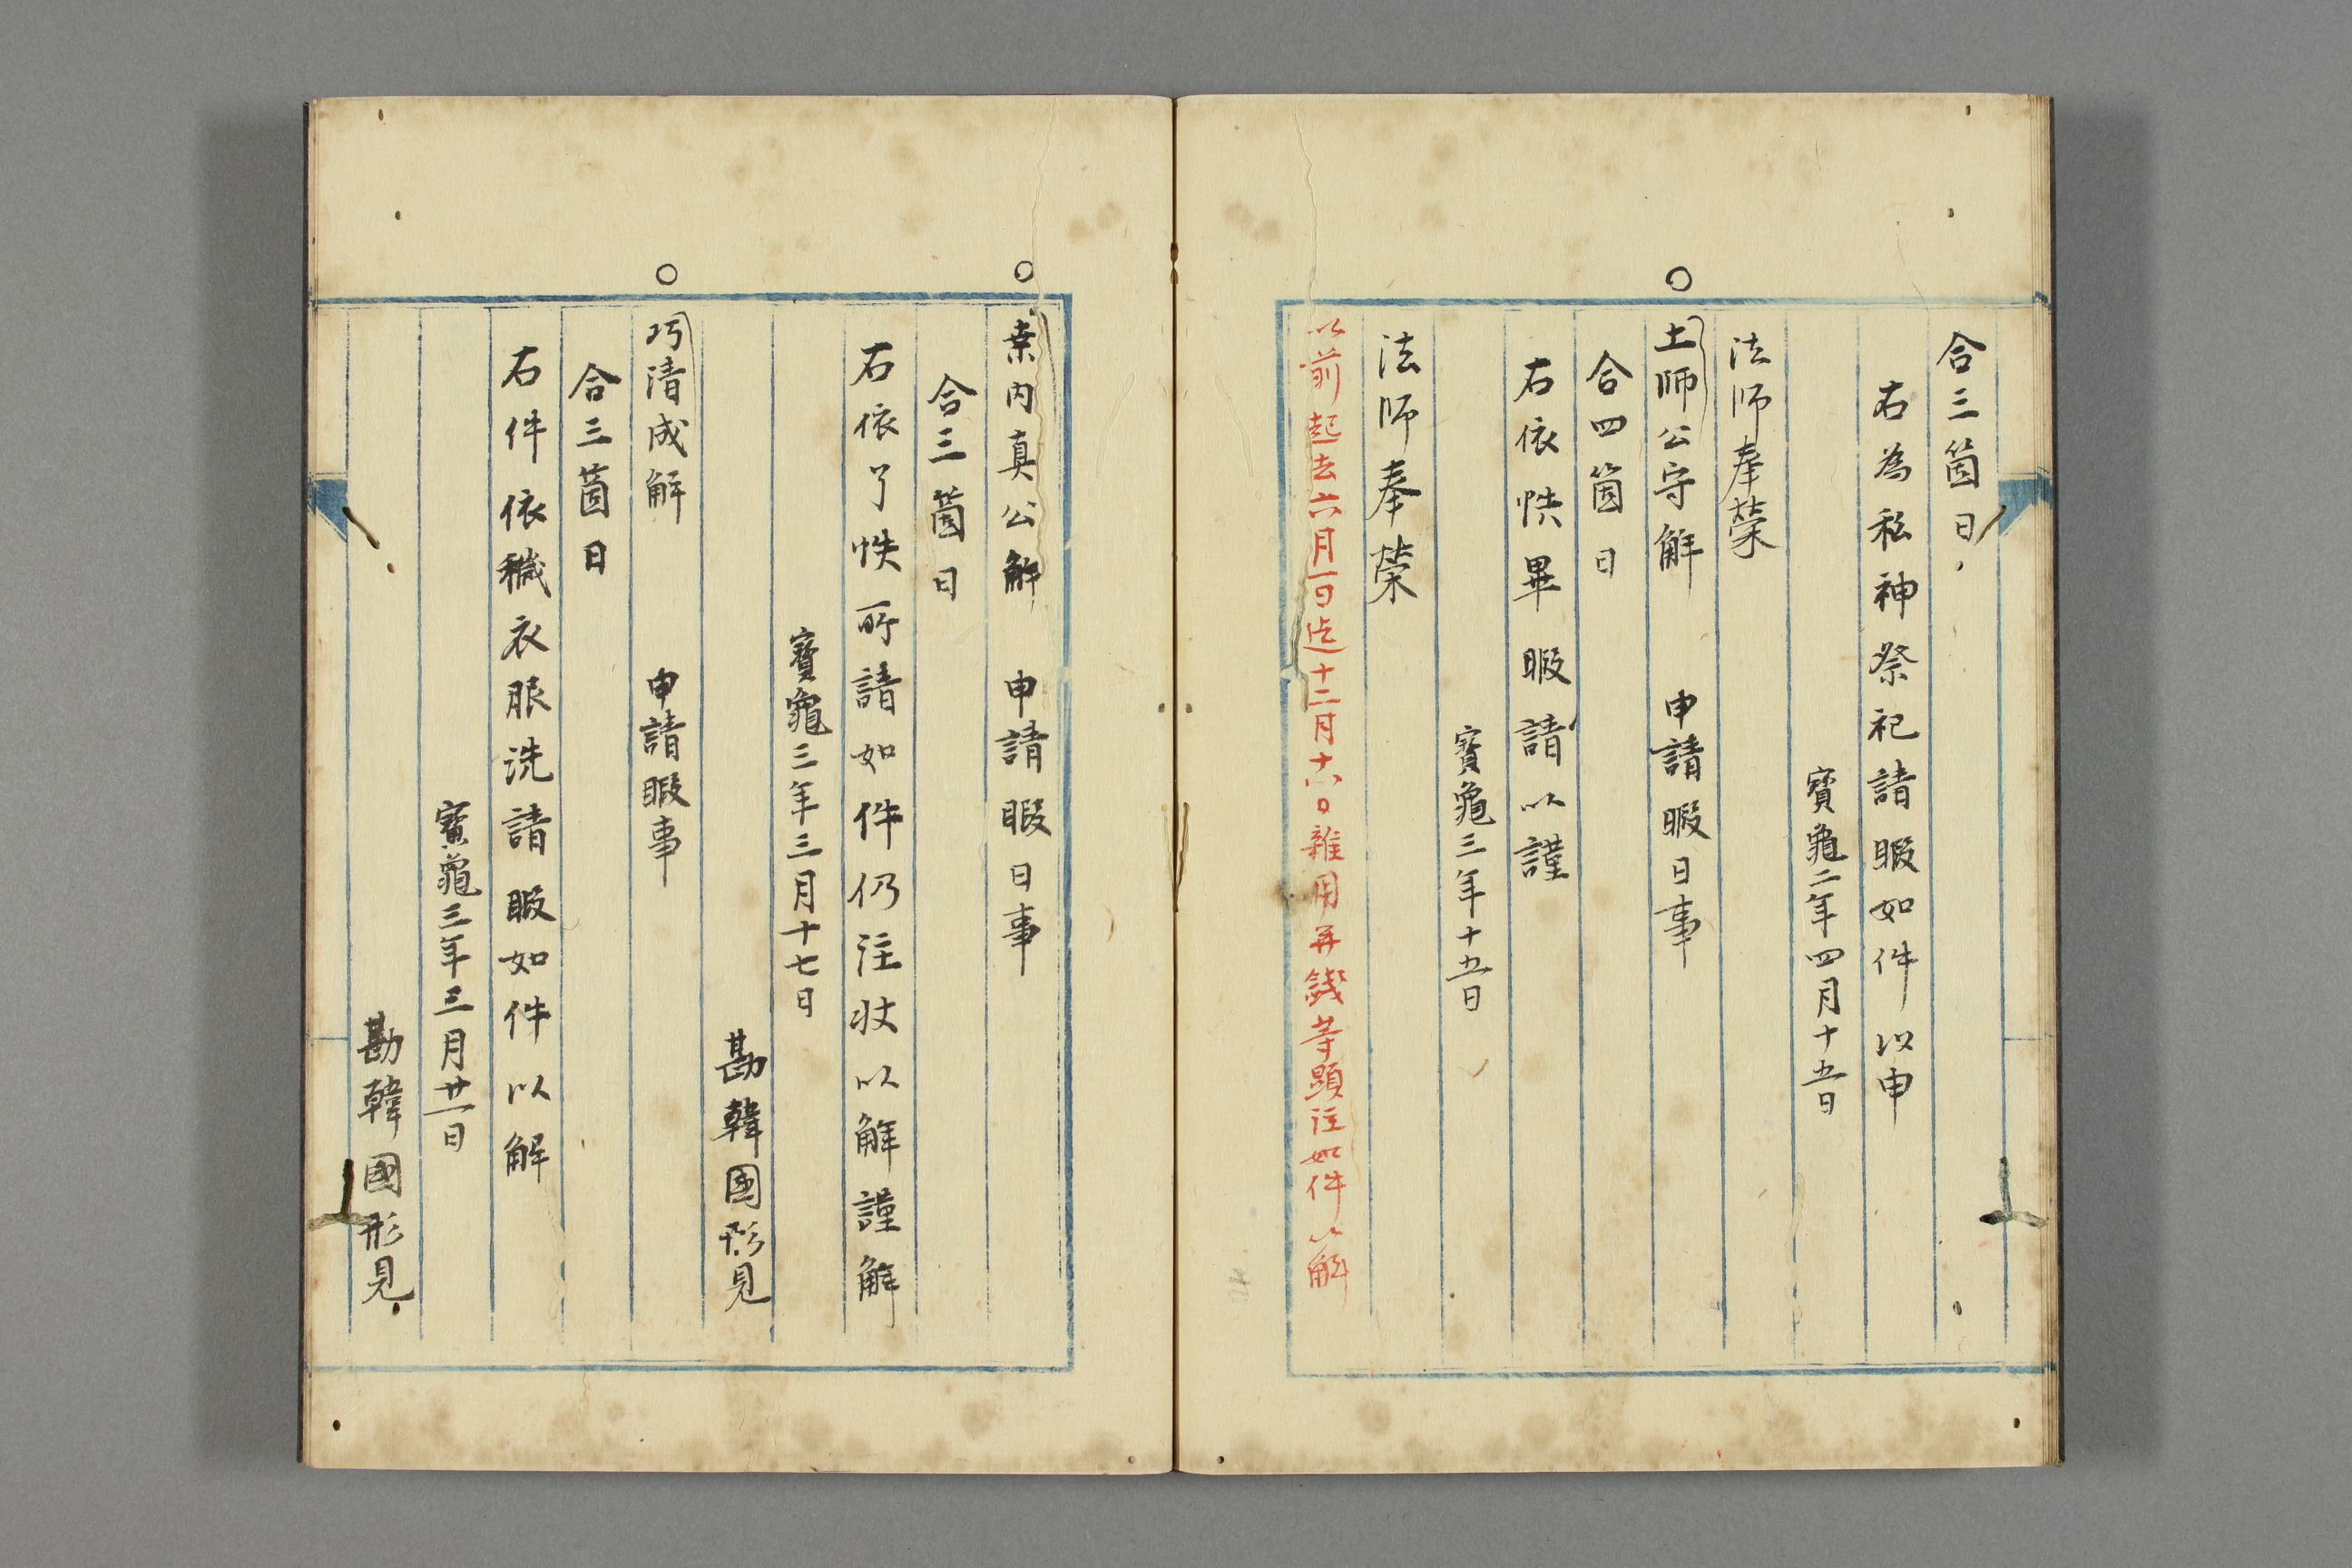 合三箇日
右為私神祭祀請暇如件以申
寶龜二年四月十五日
法師奉榮
○土師公守解 申請暇日事
合四箇日
右依帙畢暇請以謹
寶龜三年十五日
法師奉榮
以前起去六月一日迄十二月十六日雜用并錢等顯注如件以解
○桒内真公解 申請暇日事
合三箇日
右依了帙所請如件仍注状以解謹解
寶龜三年三月十七日
勘韓國形見
○巧清成解 申請暇事
合三箇日
右件依穢衣服洗請暇如件以解
寶龜三年三月廿一日
勘韓國形見